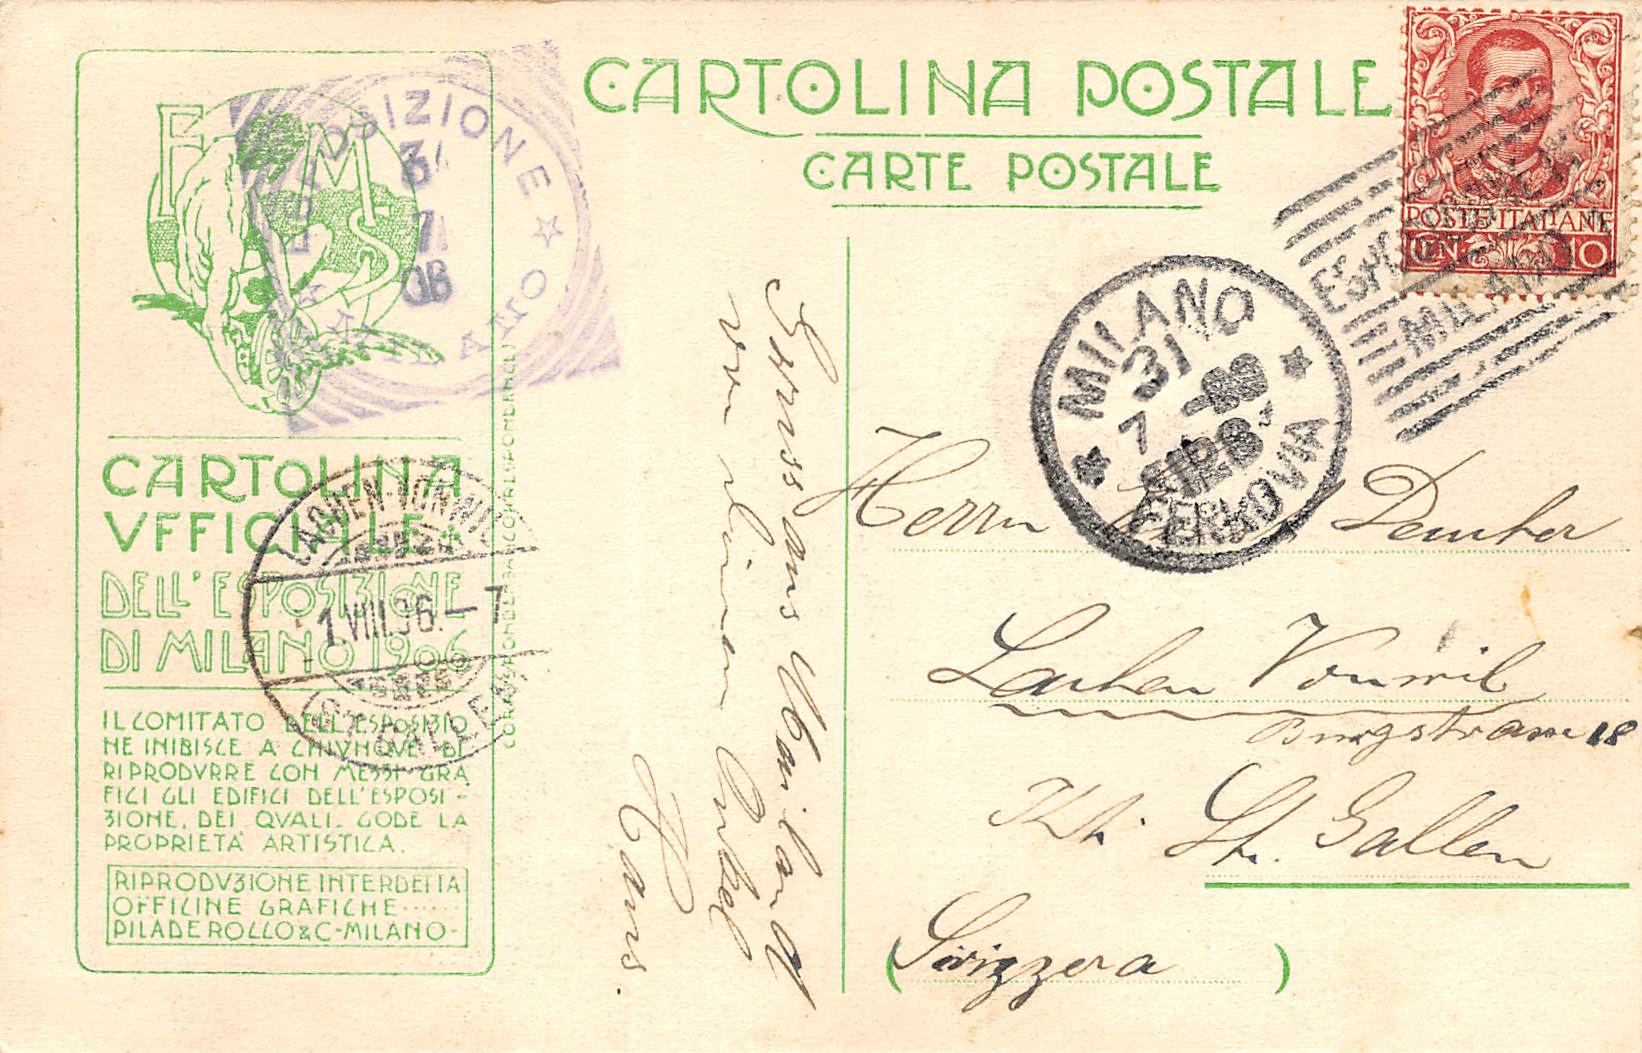 CARTOLINA POSTALE
CARTE POSTALE
EMS
ESPOSIZIONE
31
7
06
MILANO
CARTOLINA
VFFICIALE
DELL'ESPOSIZIONE
DI MILANO 1906
IL COMITATO DELL'ESPOSIZIO
NE INIBISCE A CHIVNQVE DI
RIPRODVRRE CON MEZZI GRA
FICI GLI EDIFICI DELL'ESPOSI-
ZIONE, DEI QVALI GODE LA
PROPRIETA' ARTISTICA.
RIPRODVZIONE INTERDETTA
OFFICINE GRAFICHE
PILADE ROCCO & C-MILANO-
LACHEN-VONWIL
1.VIII.06.-7
(ST. GALLEN)
Gruss aus Mailand
von deinem Onkel
Hans.
POSTE ITALIANE
CEN. 10
MILANO
MILANO
31
7
FERROVIA
Herrn Demuter
Lachen Vonwil
Burgstrasse 18
Kt. St. Gallen
(Svizzera)